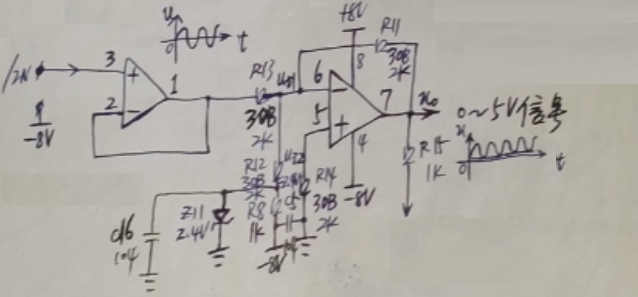 +8V
R11
30B
2K
u
0
t
/IN
3
+
1
2
-
R13
30B
2K
6
-
5
+
8
7
4
u₀
0~5V信号
u
0
t
-8V
R15
1K
R12
30B
2K
R8
1K
R14
30B
2K
-8V
-8V
Z11
2.4V
C16
104
104